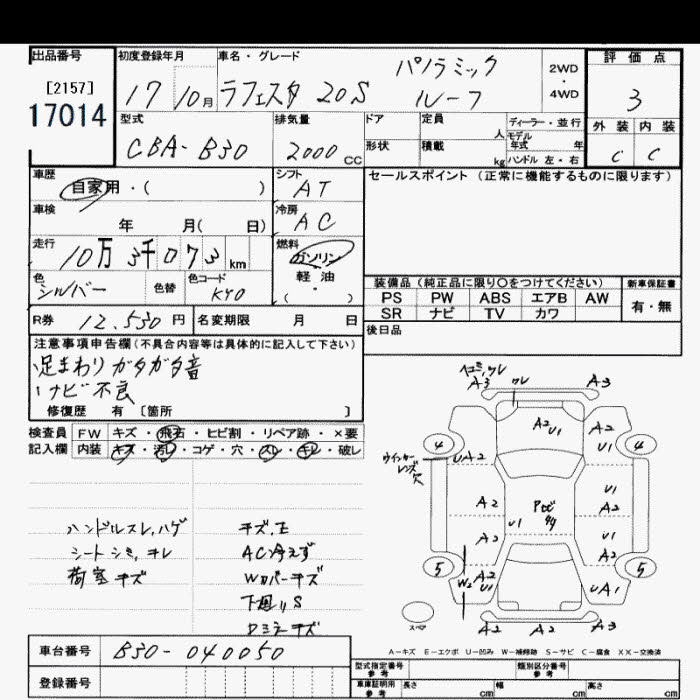 出品番号
[2157]
17014
初度登録年月
17 10月
車名・グレード
ラフェスタ 20S パノラミック ルーフ
2WD
・
4WD
評価点
3
型式
CBA-B30
排気量
2000 CC
ドア
定員
人
形状
積載
kg
ディーラー・並行
モデル年式 年
ハンドル 左・右
外装 内装
C C
車歴
自家用・( )
シフト
AT
車検
年 月( 日)
冷房
AC
走行
10万3千073 km
燃料
ガソリン
軽油
・( )
色
シルバー
色替
色コード
KY0
R券 12,530 円
名変期限 月 日
セールスポイント (正常に機能するものに限ります)
装備品 (純正品に限り○をつけてください)
新車保証書
PS PW ABS エアB AW
SR ナビ TV カワ
有・無
後日品
注意事項申告欄(不具合内容等は具体的に記入して下さい)
足まわりガタガタ音
ナビ不良
修復歴 有 [箇所 ]
検査員記入欄
FW キズ・飛石・ヒビ割・リペア跡・×要
内装 キズ・汚レ・コゲ・穴・スレ・キレ・破レ
ハンドルスレ,ハゲ
シートシミ,キレ
荷室キズ
キズ,E
AC冷えず
Wカバーキズ
下廻りS
Dミラーキズ
ヘコミ,ワレ
A3 ワレ A3
A2 U1
A2
U1
4 4
ウインカーレンズ穴
UA2
A2
U1
A2
U1
A2
U1
A2
5 5
W2 A2
U1
UA1
スペア
A2 A2 A3
A-キズ E-エクボ U-凹み W-補修跡 S-サビ C-腐食 XX-交換済
車台番号 B30-040050
登録番号
型式指定番号 参考
類別区分番号 参考
車庫証明用 参考 長さ cm 幅 cm 高さ cm